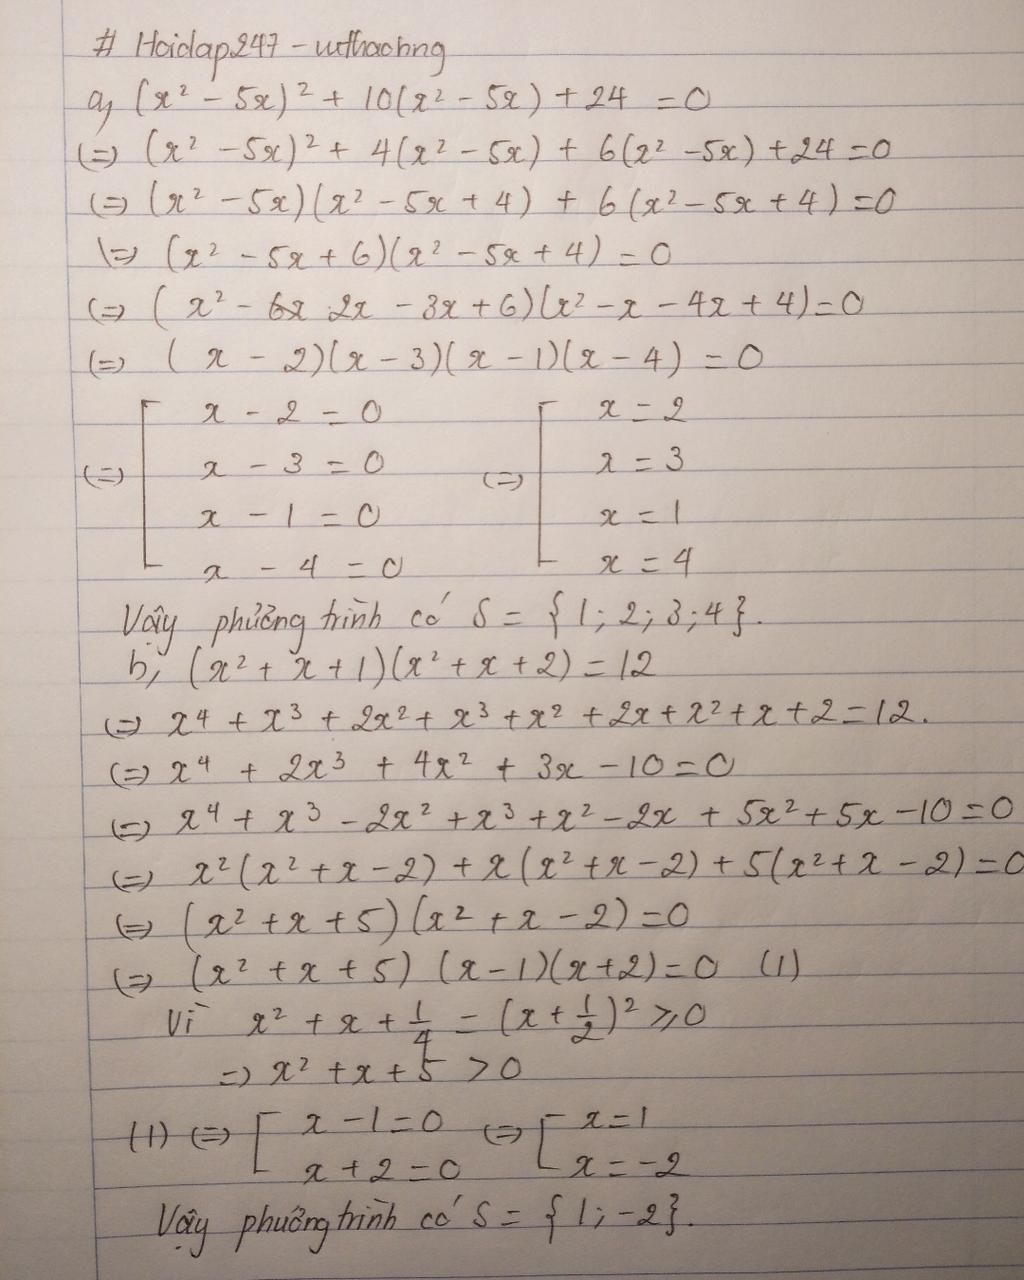 # Hoidap247 - uithachng
a, (x² - 5x)² + 10(x² - 5x) + 24 = 0
(=) (x² - 5x)² + 4(x² - 5x) + 6(x² - 5x) + 24 = 0
(=) (x² - 5x)(x² - 5x + 4) + 6(x² - 5x + 4) = 0
(=) (x² - 5x + 6)(x² - 5x + 4) = 0
(=) (x² - 2x - 3x + 6)(x² - x - 4x + 4) = 0
(=) (x - 2)(x - 3)(x - 1)(x - 4) = 0
(=) [ x - 2 = 0 (=) [ x = 2
x - 3 = 0 x = 3
x - 1 = 0 x = 1
x - 4 = 0 x = 4
Vậy phường trình có S = {1; 2; 3; 4}.
b, (x² + x + 1)(x² + x + 2) = 12
(=) x⁴ + x³ + 2x² + x³ + x² + 2x + x² + x + 2 = 12.
(=) x⁴ + 2x³ + 4x² + 3x - 10 = 0
(=) x⁴ + x³ - 2x² + x³ + x² - 2x + 5x² + 5x - 10 = 0
(=) x²(x² + x - 2) + x(x² + x - 2) + 5(x² + x - 2) = 0
(=) (x² + x + 5)(x² + x - 2) = 0
(=) (x² + x + 5) (x - 1)(x + 2) = 0 (1)
Vì x² + x + 1/4 = (x + 1/2)² ≥ 0
=) x² + x + 5 > 0
(1) (=) [ x - 1 = 0 (=) [ x = 1
x + 2 = 0 x = -2
Vậy phường trình có S = {1; -2}.